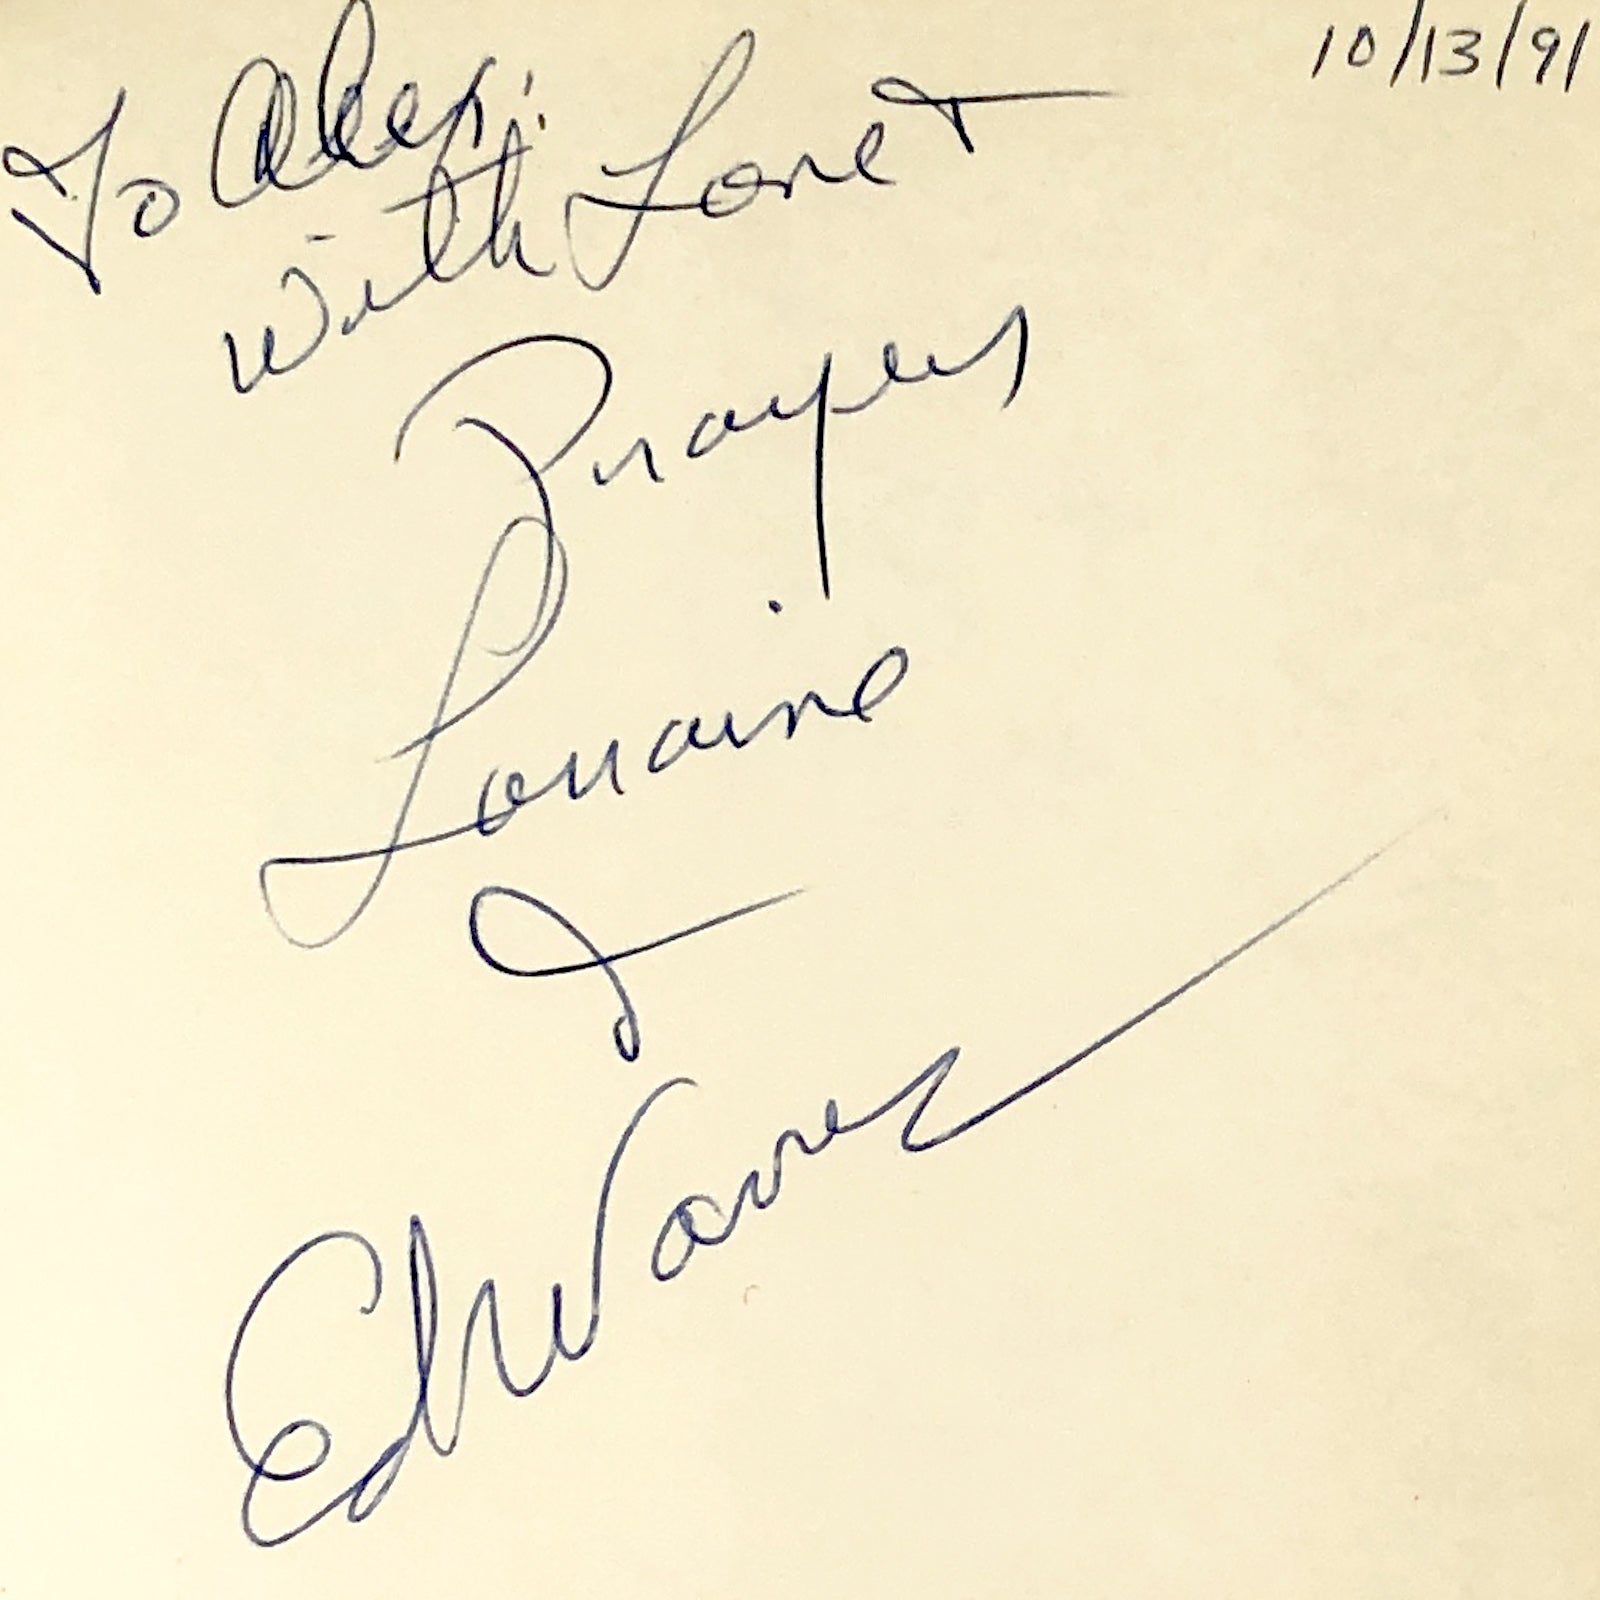 10/13/91
To Alex:
with Love +
Prayers
Lorraine
&
Ed Warren